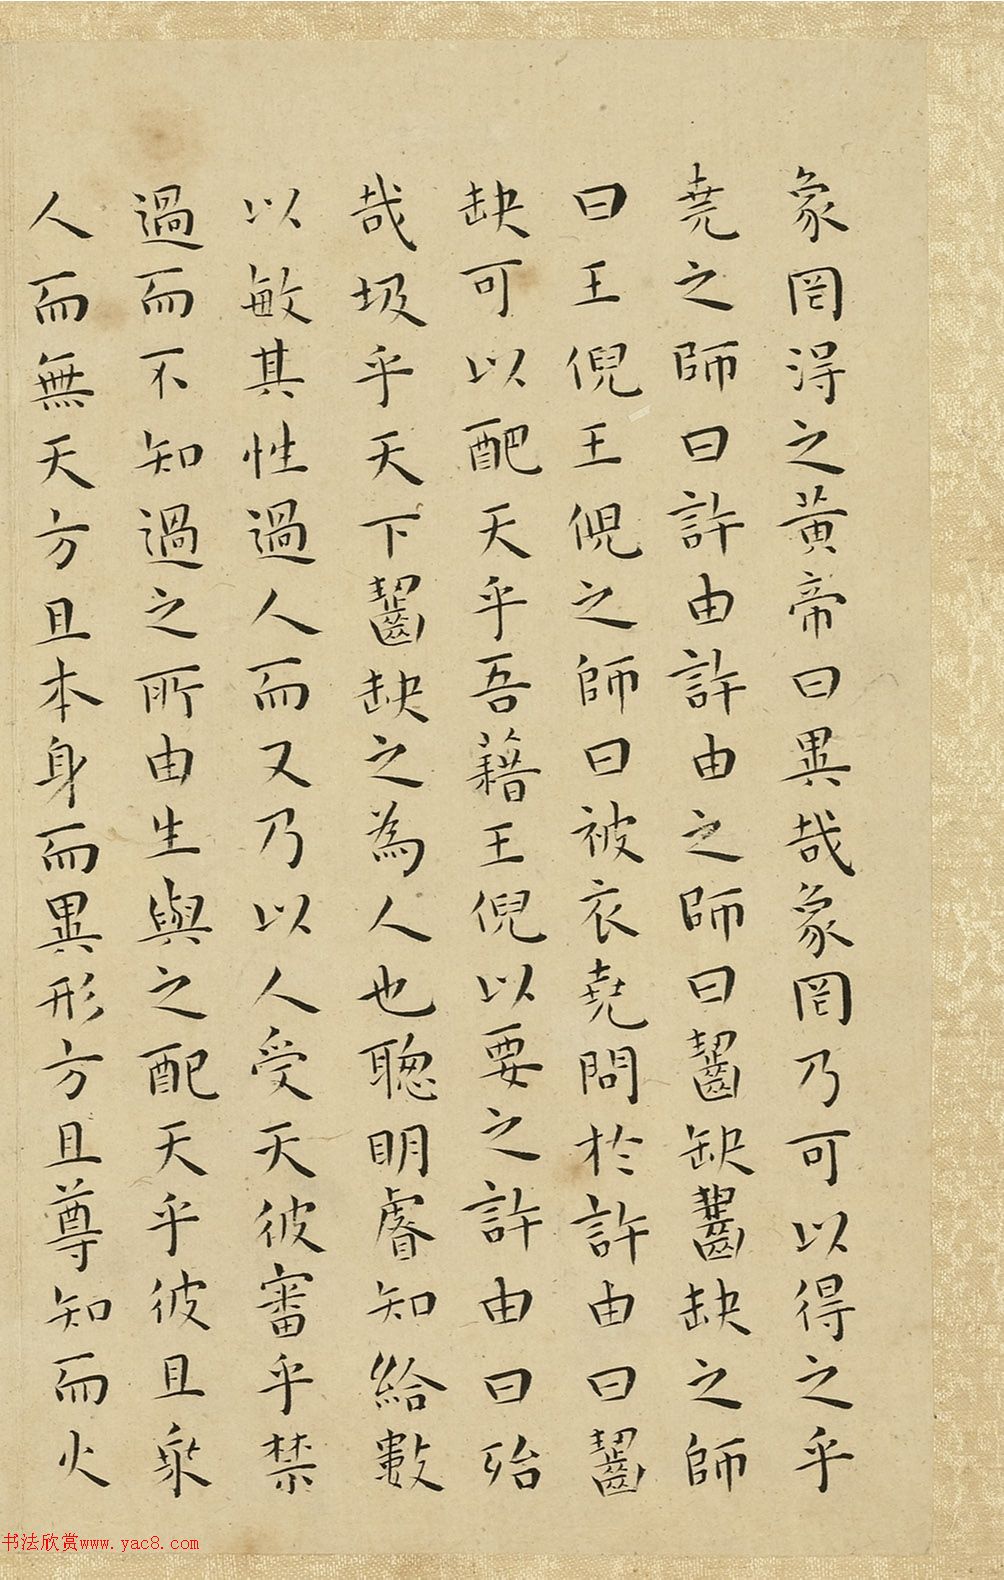 象罔淂之黃帝曰異哉象罔乃可以得之乎
堯之師曰許由許由之師曰齧缺齧缺之師
曰王倪王倪之師曰被衣堯問於許由曰齧
缺可以配天乎吾藉王倪以要之許由曰殆
哉圾乎天下齧缺之為人也聰明睿知給數
以敏其性過人而又乃以人受天彼審乎禁
過而不知過之所由生與之配天乎彼且乘
人而無天方且本身而異形方且尊知而火
书法欣赏www.yac8.com